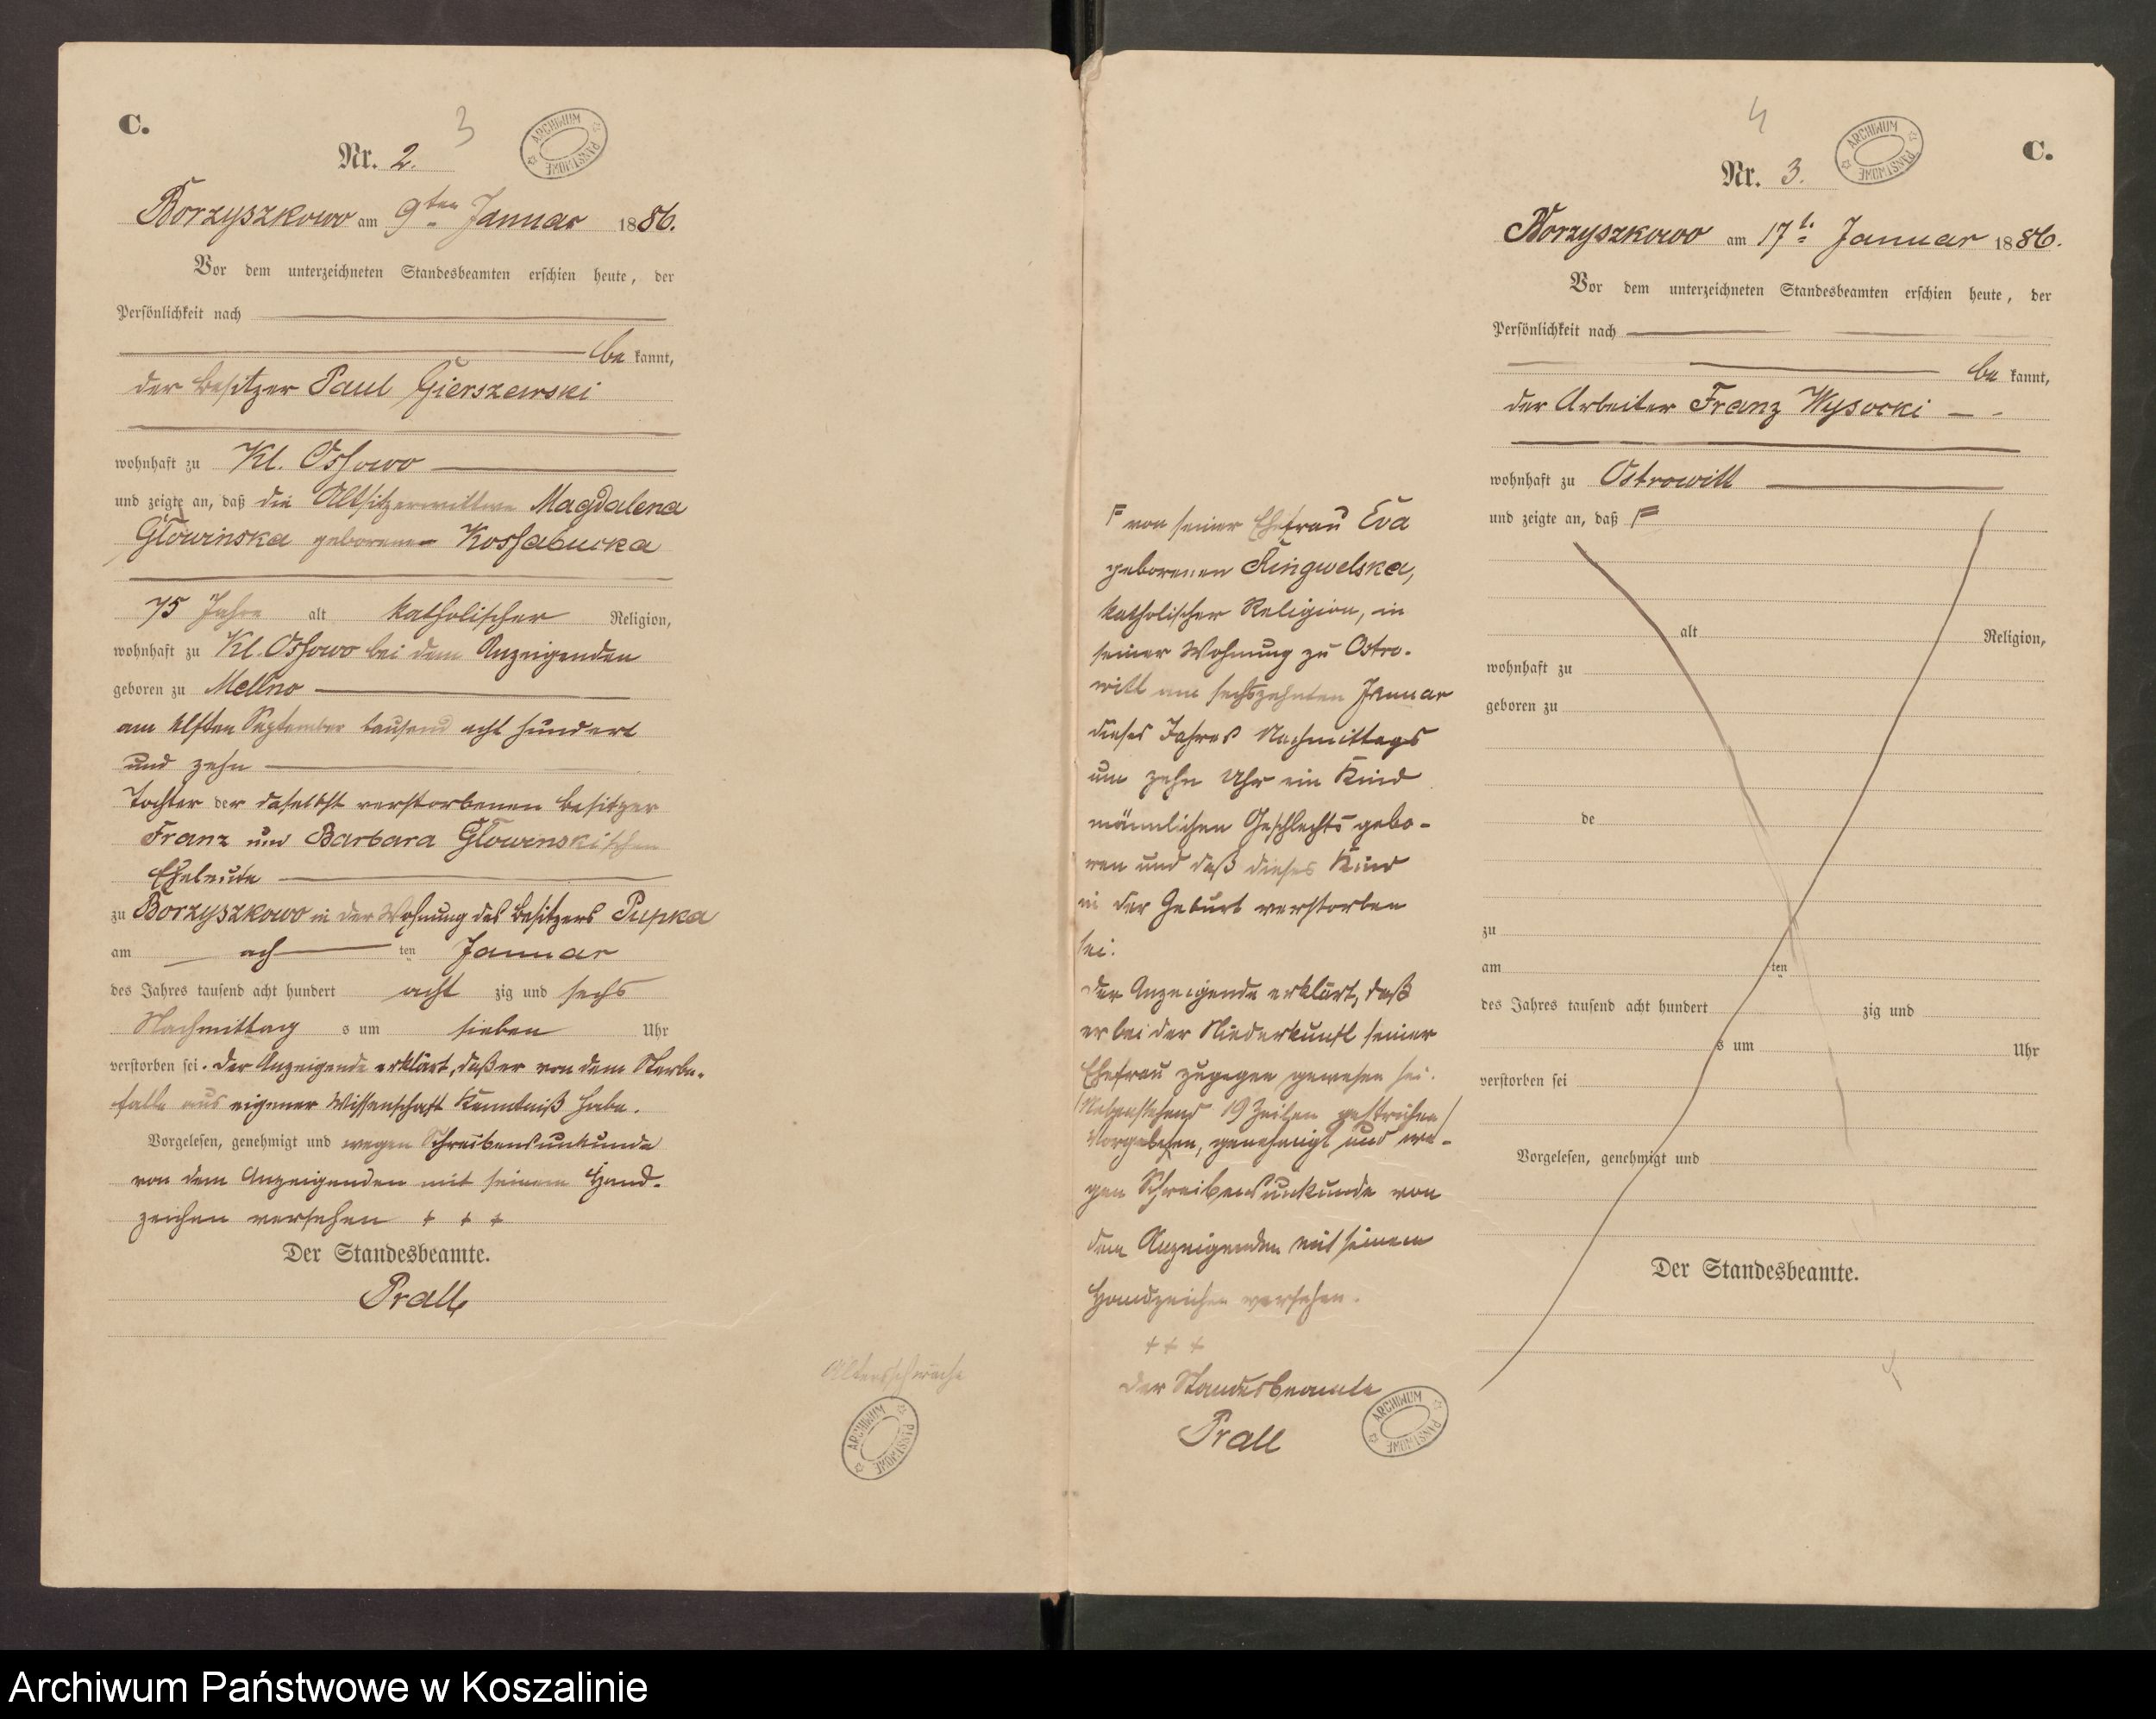 C.
3
Nr. 2.
ARCHIWUM PAŃSTWOWE
Borzyszkowo am 9ten Januar 1886.
Vor dem unterzeichneten Standesbeamten erschien heute, der
Persönlichkeit nach
be kannt,
der Besitzer Paul Gierszewski
wohnhaft zu Kl. Ossowo
und zeigte an, daß die Altsitzerwittwe Magdalena
Glowinska geborene Kossabucka
75 Jahre alt katholischer Religion,
wohnhaft zu Kl. Ossowo bei dem Anzeigenden
geboren zu Mellno
am elften September tausend acht hundert
und zehn
Tochter der daselbst verstorbenen Besitzer
Franz und Barbara Glowinskischen
Eheleute
zu Borzyszkowo in der Wohnung des Besitzers Pupka
am ach ten Januar
des Jahres tausend acht hundert acht zig und sechs
Nachmittag s um sieben Uhr
verstorben sei. Der Anzeigende erklärt, daß er von dem Sterbe-
falle aus eigener Wissenschaft Kenntniß habe.
Vorgelesen, genehmigt und wegen Schreibensunkunde
von dem Anzeigenden mit seinem Hand-
zeichen versehen + + +
Der Standesbeamte.
Prall
Altersschwäche
ARCHIWUM PAŃSTWOWE
4
C.
Nr. 3.
ARCHIWUM PAŃSTWOWE
Borzyszkowo am 17t. Januar 1886.
Vor dem unterzeichneten Standesbeamten erschien heute, der
Persönlichkeit nach
be kannt,
der Arbeiter Franz Wysocki
wohnhaft zu Ostrowitt
und zeigte an, daß F
F von seiner Ehefrau Eva
geborenen Kingwelska,
katholischer Religion, in
seiner Wohnung zu Ostro-
witt am sechszehnten Januar
dieses Jahres Nachmittags
um zehn Uhr ein Kind
männlichen Geschlechts gebo-
ren und daß dieses Kind
in der Geburt verstorben
sei.
Der Anzeigende erklärt, daß
er bei der Niederkunft seiner
Ehefrau zugegen gewesen sei.
/Nebenstehend 19 Zeilen gestrichen/
Vorgelesen, genehmigt und we-
gen Schreibensunkunde von
dem Anzeigenden mit seinem
Handzeichen versehen.
+ + +
Der Standesbeamte
Prall
ARCHIWUM PAŃSTWOWE
alt Religion,
wohnhaft zu
geboren zu
de
zu
am ten
des Jahres tausend acht hundert zig und
s um Uhr
verstorben sei
Vorgelesen, genehmigt und
Der Standesbeamte.
Archiwum Państwowe w Koszalinie